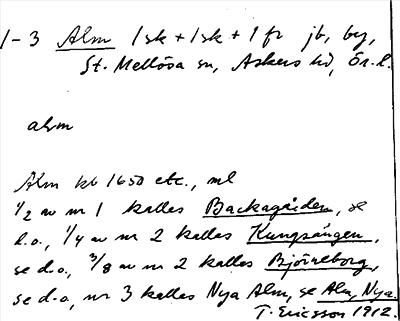 1-3 Alm 1 sk + 1 sk + 1 fr jb, by,
St. Mellösa sn, Askers hd, Ör. l.
alm
Alm kb 1650 etc., ml
1/2 av nr 1 kallas Backagården, se
d.o., 1/4 av nr 2 kallas Kungsängen,
se d.o., 3/8 av nr 2 kallas Björneborg,
se d.o, nr 3 kallas Nya Alm, se Alm, Nya.
T. Ericsson 1912.